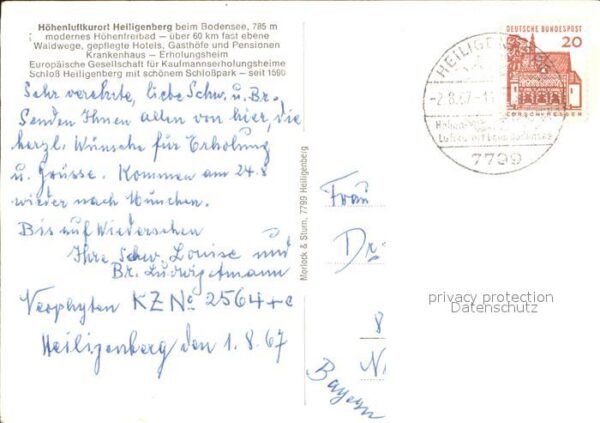 Höhenluftkurort Heiligenberg beim Bodensee, 785 m
modernes Höhenfreibad — über 60 km fast ebene
Waldwege, gepflegte Hotels, Gasthöfe und Pensionen
Krankenhaus — Erholungsheim
Europäische Gesellschaft für Kaufmannserholungsheime
Schloß Heiligenberg mit schönem Schloßpark — seit 1590
Sehr verehrte, liebe Schw. u. Br.
Senden Ihnen allen von hier, die
herzl. Wünsche für Erholung
u. Grüsse. Kommen am 24.8
wieder nach München.
Bis auf Wiedersehen
Ihre Schw. Louise und
Br. Ludwig
Neophyten KZ No 2564+c
Heiligenberg den 1.8.67
Morlock & Sturn, 7799 Heiligenberg
DEUTSCHE BUNDESPOST
20
LORSCH/HESSEN
HEILIGENBERG
-2.8.67-
7799
Frau
Dr.
8
Bayern
privacy protection
Datenschutz